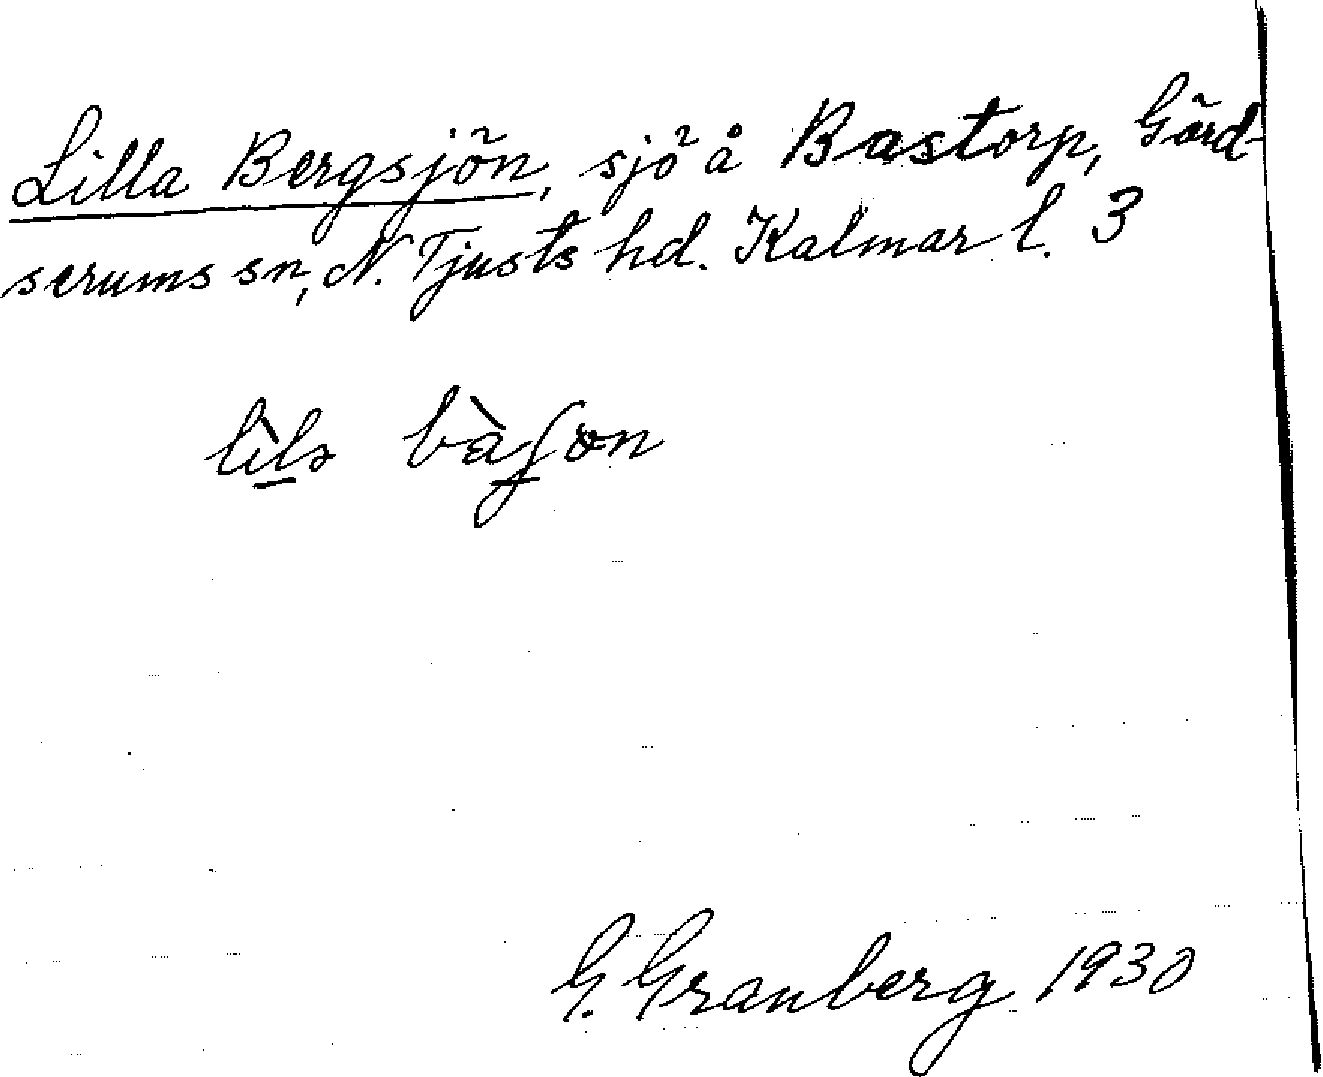 Lilla Bergsjön, sjö å Bastorp, Gärd-
serums sn, N. Tjusts hd. Kalmar l. 3
lìlə bàʃøn
G. Granberg 1930